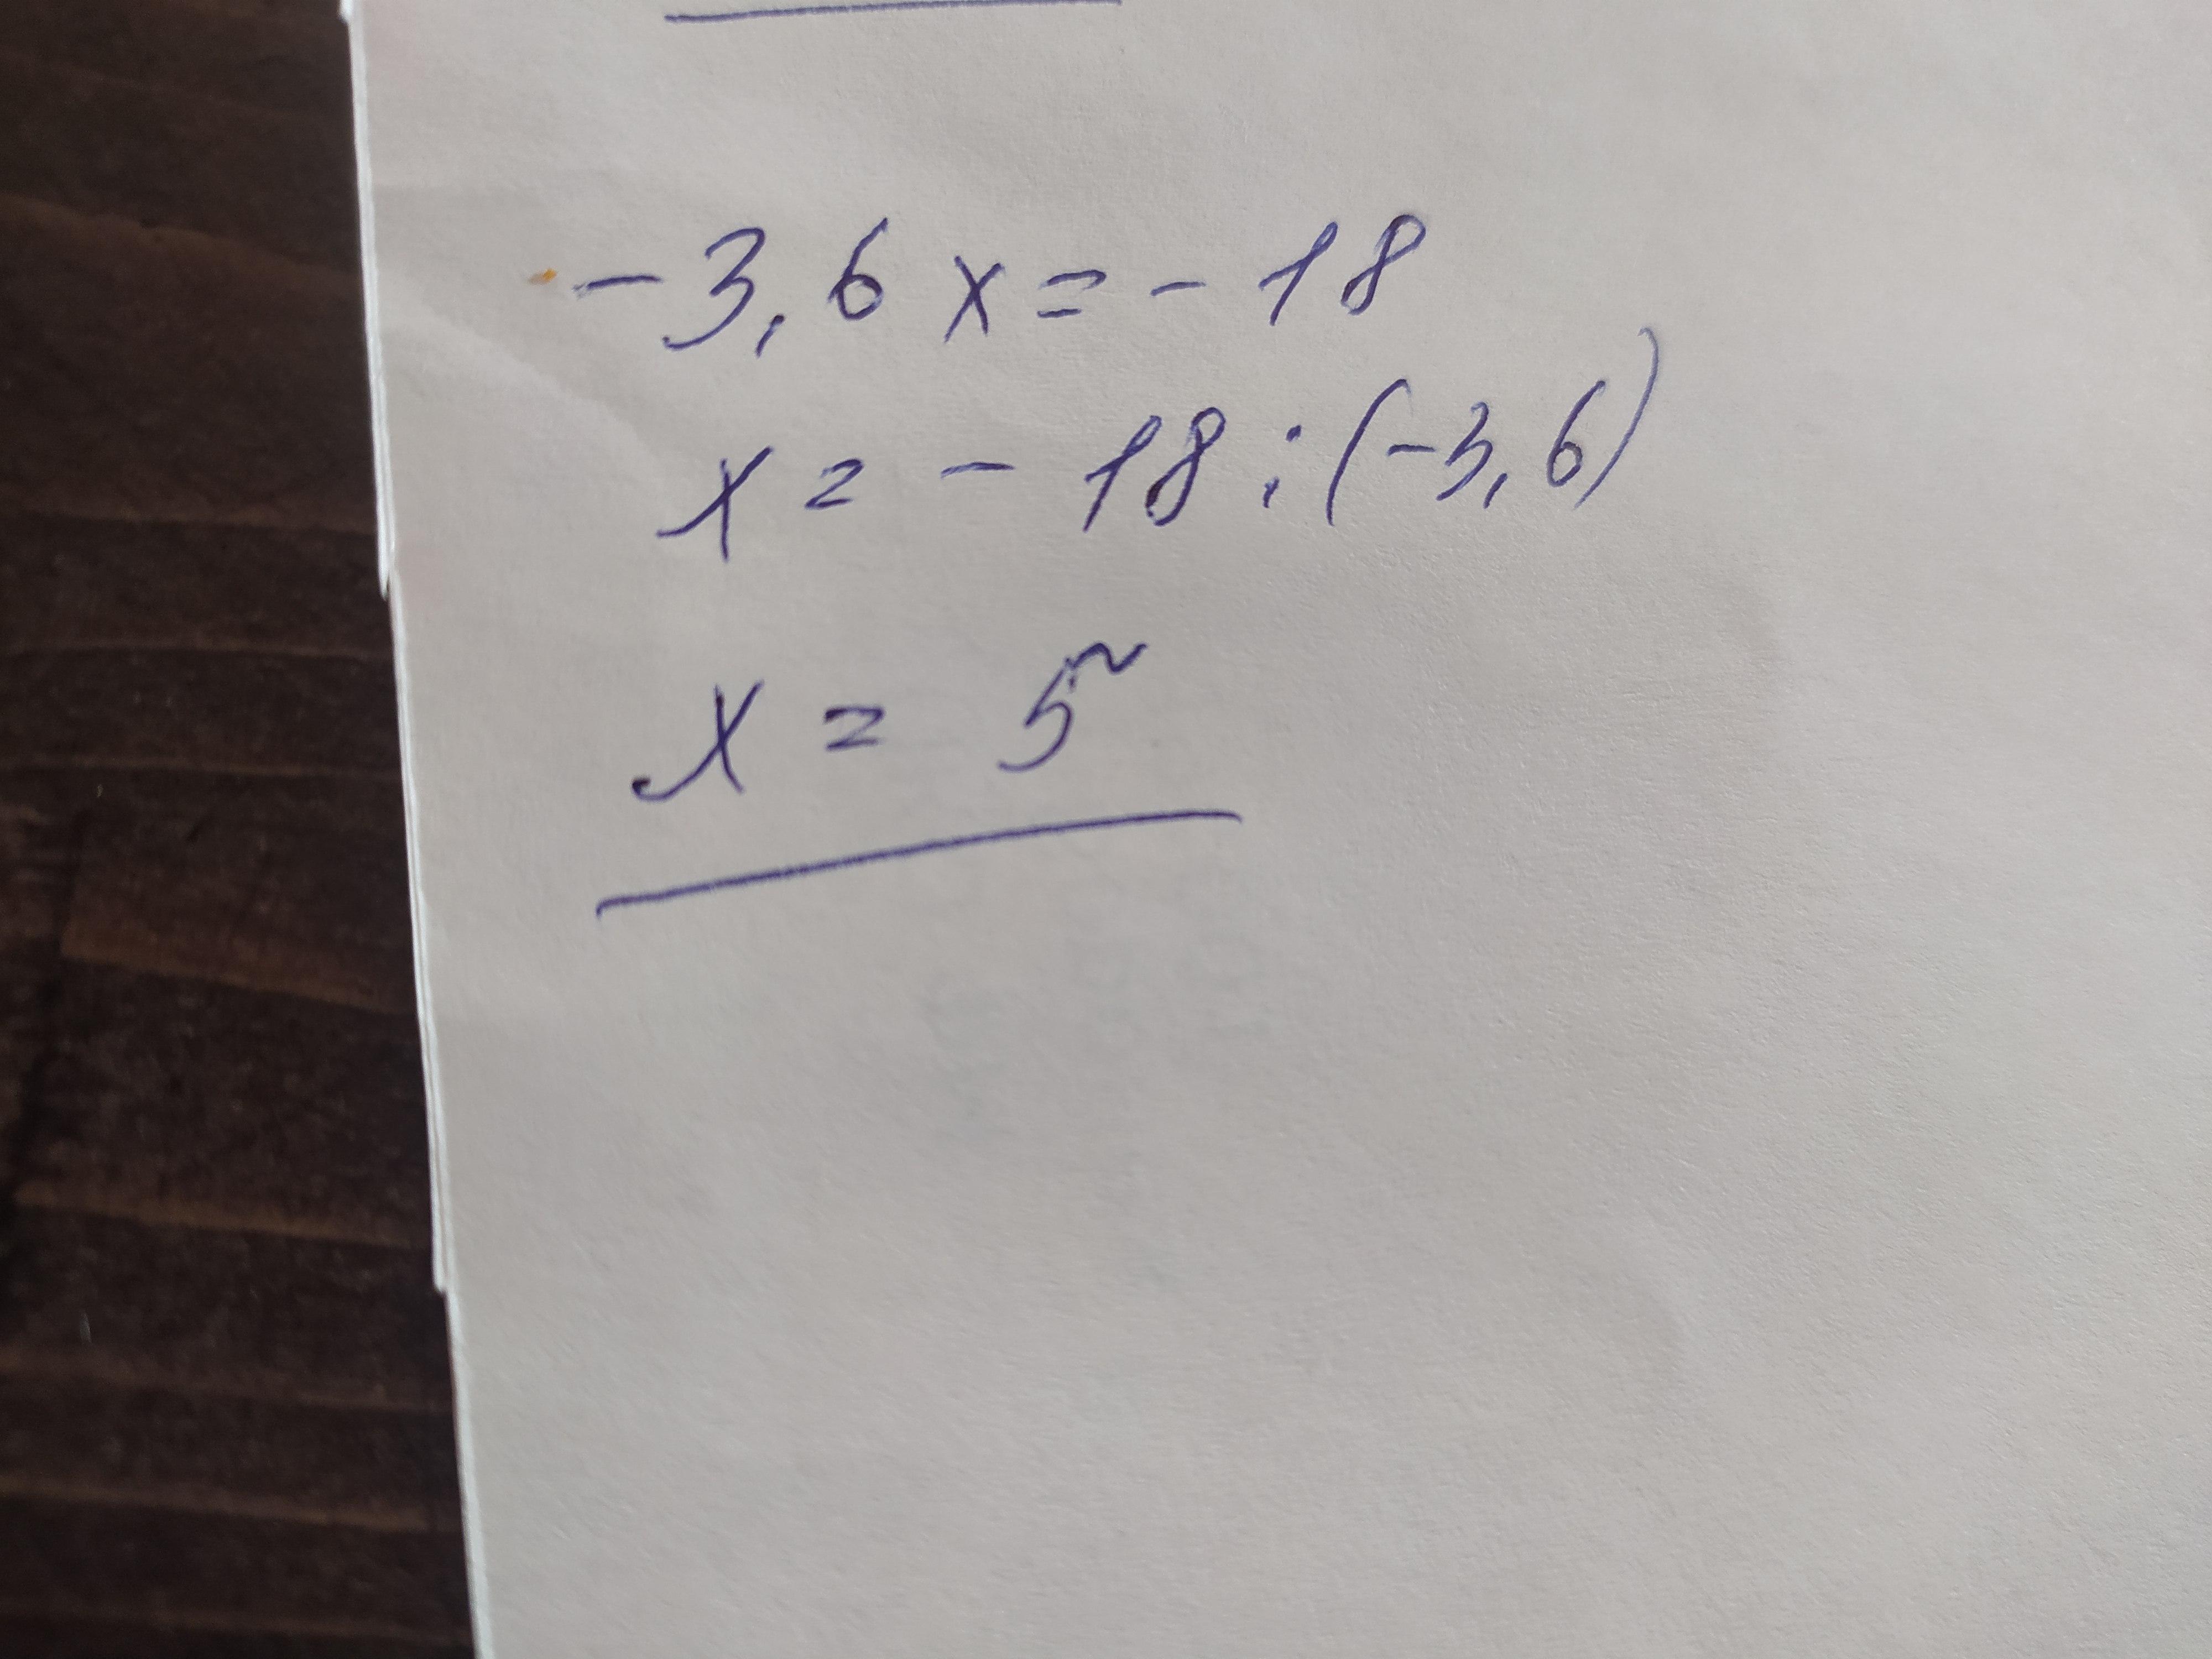 - 3,6 x = - 18
x = - 18 : (-3,6)
x = 5